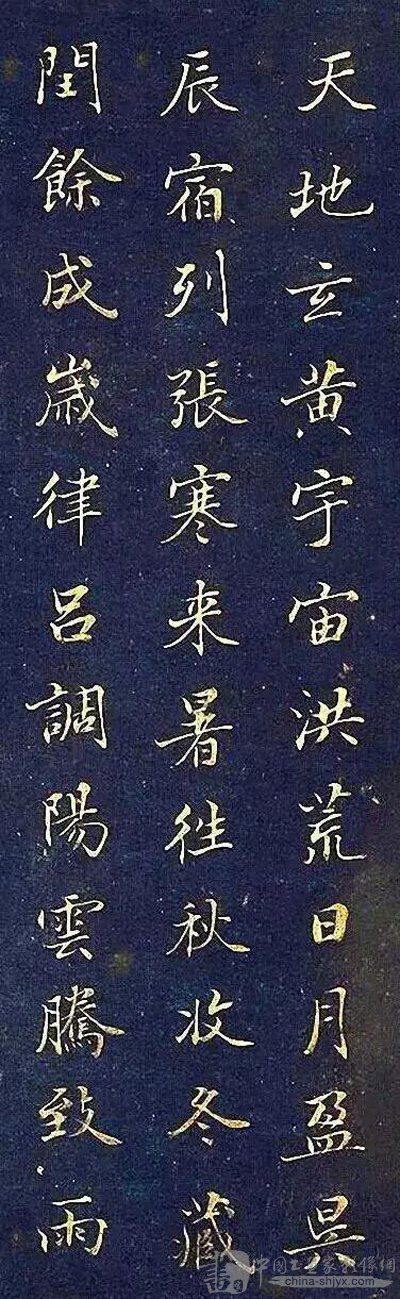 天地玄黄宇宙洪荒日月盈昃
辰宿列張寒来暑往秋收冬藏
閏餘成歲律呂調陽雲騰致雨
china-shjyx.com